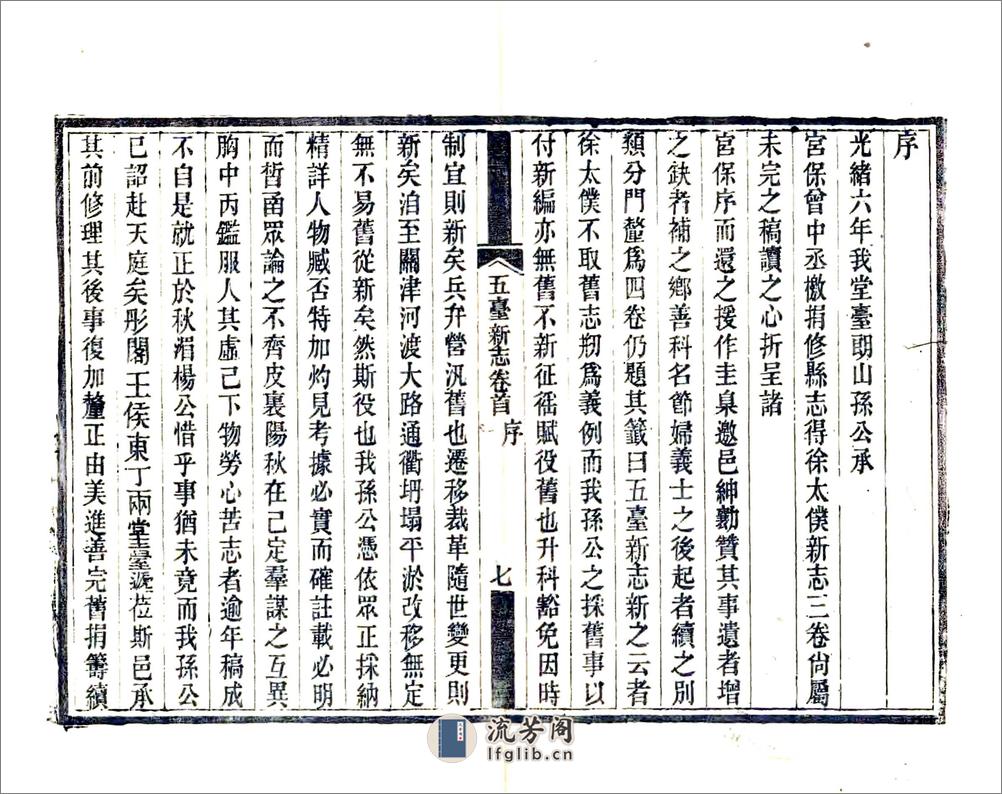 序
光緒六年我堂臺朗山孫公承
宮保曾中丞檄捐修縣志得徐太僕新志三卷尙屬
未完之稿讀之心折呈諸
宮保序而還之援作圭臬邀邑紳勷贊其事遺者增
之缺者補之鄉善科名節婦義士之後起者續之別
類分門釐爲四卷仍題其籤曰五臺新志新之云者
徐太僕不取舊志刱爲義例而我孫公之採舊事以
付新編亦無舊不新征徭賦役舊也升科豁免因時
五臺新志卷首 序 七
制宜則新矣兵弁營汛舊也遷移裁革隨世變更則
新矣洎至關津河渡大路通衢坍塌平淤改移無定
無不易舊從新矣然斯役也我孫公憑依眾正採納
精詳人物臧否特加灼見考據必實而確註載必明
而晢函眾論之不齊皮裏陽秋在己定羣謀之互異
胸中丙鑑服人其虛己下物勞心苦志者逾年稿成
不自是就正於秋湄楊公惜乎事猶未竟而我孫公
已詔赴天庭矣彤閣王侯東丁兩堂臺遞莅斯邑承
其前修理其後事復加釐正由美進善完舊捐籌續
流芳阁
lfglib.cn